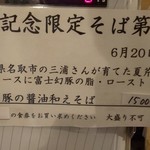 記念限定そば第
6月20日
県名取市の三浦さんが育てた夏芹
ースに富士幻豚の脂・ロースト
豚の醤油和えそば 1500
の食券をお買い求めください 大盛り不可